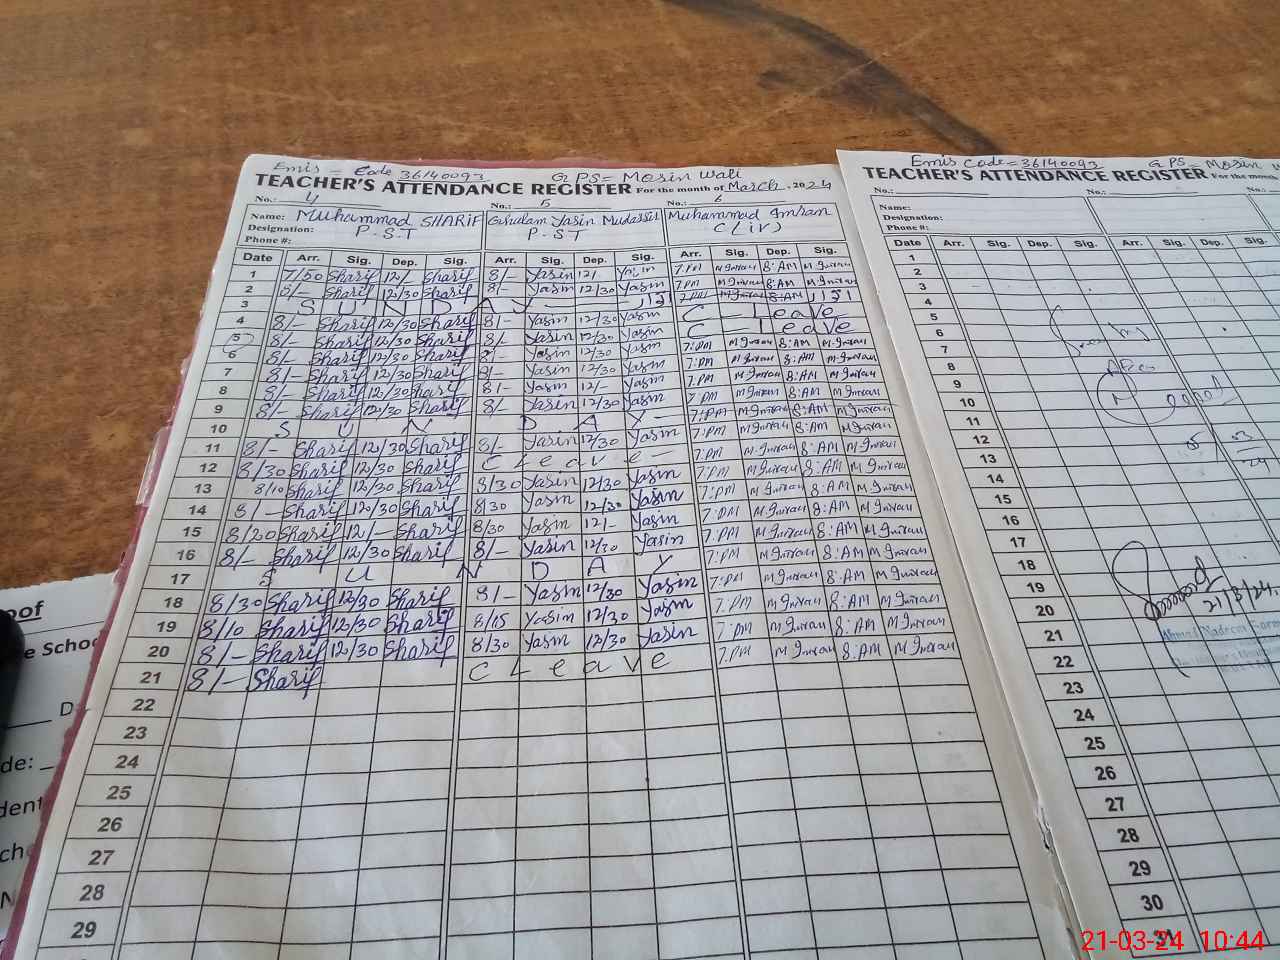 Emis - Code 36140093 GPS= Mosin Wali
TEACHER'S ATTENDANCE REGISTER For the month of March. 2024
No.: 4 No.: 5 No.: 6
Name: Muhammad SHARIF Ghulam Yasin Mudassir Muhammad Imran
Designation: P.S.T P-ST C(iv)
Phone #:
Date Arr. Sig. Dep. Sig. Arr. Sig. Dep. Sig. Arr. Sig. Dep. Sig.
1 7/50 Sharif 12/- Sharif 8/- Yasin 12/- Yasin 7:PM M Imran 8:AM M Imran
2 8/- Sharif 12/30 Sharif 8/- Yasin 12/30 Yasin 7PM M Imran 8:AM M Imran
3 S U N D A Y 7PM M Imran 8:AM
4 8/- Sharif 12/30 Sharif 8/- Yasin 12/30 Yasin C - Leave
5 8/- Sharif 12/30 Sharif 8/- Yasin 12/30 Yasin C - Leave
6 8/- Sharif 12/30 Sharif 8/- Yasin 12/30 Yasin 7:PM M Imran 8:AM M Imran
7 8/- Sharif 12/30 Sharif 8/- Yasin 12/30 Yasin 7:PM M Imran 8:AM M Imran
8 8/- Sharif 12/30 Sharif 8/- Yasin 12/- Yasin 7:PM M Imran 8:AM M Imran
9 8/- Sharif 12/30 Sharif 8/- Yasin 12/30 Yasin 7:PM M Imran 8:AM M Imran
10 S U N D A Y 7:PM M Imran 8:AM M Imran
11 8/- Sharif 12/30 Sharif 8/- Yasin 12/30 Yasin 7:PM M Imran 8:AM M Imran
12 8/30 Sharif 12/30 Sharif C Leave 7:PM M Imran 8:AM M Imran
13 8/10 Sharif 12/30 Sharif 8/30 Yasin 12/30 Yasin 7:PM M Imran 8:AM M Imran
14 8/- Sharif 12/30 Sharif 8/30 Yasin 12/30 Yasin 7:PM M Imran 8:AM M Imran
15 8/20 Sharif 12/- Sharif 8/30 Yasin 12/- Yasin 7:PM M Imran 8:AM M Imran
16 8/- Sharif 12/30 Sharif 8/- Yasin 12/30 Yasin 7:PM M Imran 8:AM M Imran
17 S U N D A Y 7:PM M Imran 8:AM M Imran
18 8/30 Sharif 12/30 Sharif 8/- Yasin 12/30 Yasin 7:PM M Imran 8:AM M Imran
19 8/10 Sharif 12/30 Sharif 8/15 Yasin 12/30 Yasin 7:PM M Imran 8:AM M Imran
20 8/- Sharif 12/30 Sharif 8/30 Yasin 12/30 Yasin 7:PM M Imran 8:AM M Imran
21 8/- Sharif C Leave
22
23
24
25
26
27
28
29
Emis Code=36140093 GPS= Mosin
TEACHER'S ATTENDANCE REGISTER For the month
No.: No.: No.:
Name:
Designation:
Phone #:
Date Arr. Sig. Dep. Sig. Arr. Sig. Dep. Sig.
1
2
3
4
5
6
7
8
9
10
11
12
13
14
15
16
17
18
19
20
21
22
23
24
25
26
27
28
29
30
31
05/03/24
21/3/24
Ahmad Nadeem
oof
e Schoo
de:
dent
21-03-24 10:44